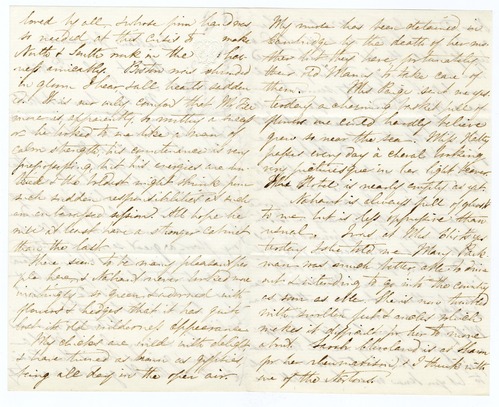 loved by all, whose firm hand was
so needed at this crisis to make
North & South work in the har
ness amicably. Boston was shrouded
in gloom & near all hearts sudden
It is our only comfort that Mr
apparently so
as he looked to me like a man of
calm strength, his countenance is very
prepossessing, but his energies are
& the boldest might shrink from
such sudden responsibilities as with
an untamped. We hope he
will at least have a stronger cabinet
than the last.
There seem to be many pleasant peo
ple here, & Nahant never looked more
invitingly so green & adorned with
flowers & hedges that it has quite
lost its old appearance
My chicks are wild with delight
& have turned as brown as gypsies
being all day in the open air.
My mule has been detained in
Cambridge by the death of her mo
ther but they have fortunately
their Old Nancy to take care of
them. Miss sent me yes
terday a charming basket full of
flowers we could hardly believe
grew so near the sea. Miss
passes every day a choral looking
very picturesque in her light
The Hotel is nearly empty as yet.
Nahant is always full of ghosts
to me, but is less oppressive than
usual. I was at Mrs
terday, & she told me Mary Park
man was much better, able to drive
out & intending to go into the country
as soon as able. She is now troubled
with swollen feet & ancles which
makes it difficult for her to move
about. Sarah Cleveland is at Sharon
for her rheumatism, & I think with
one of the